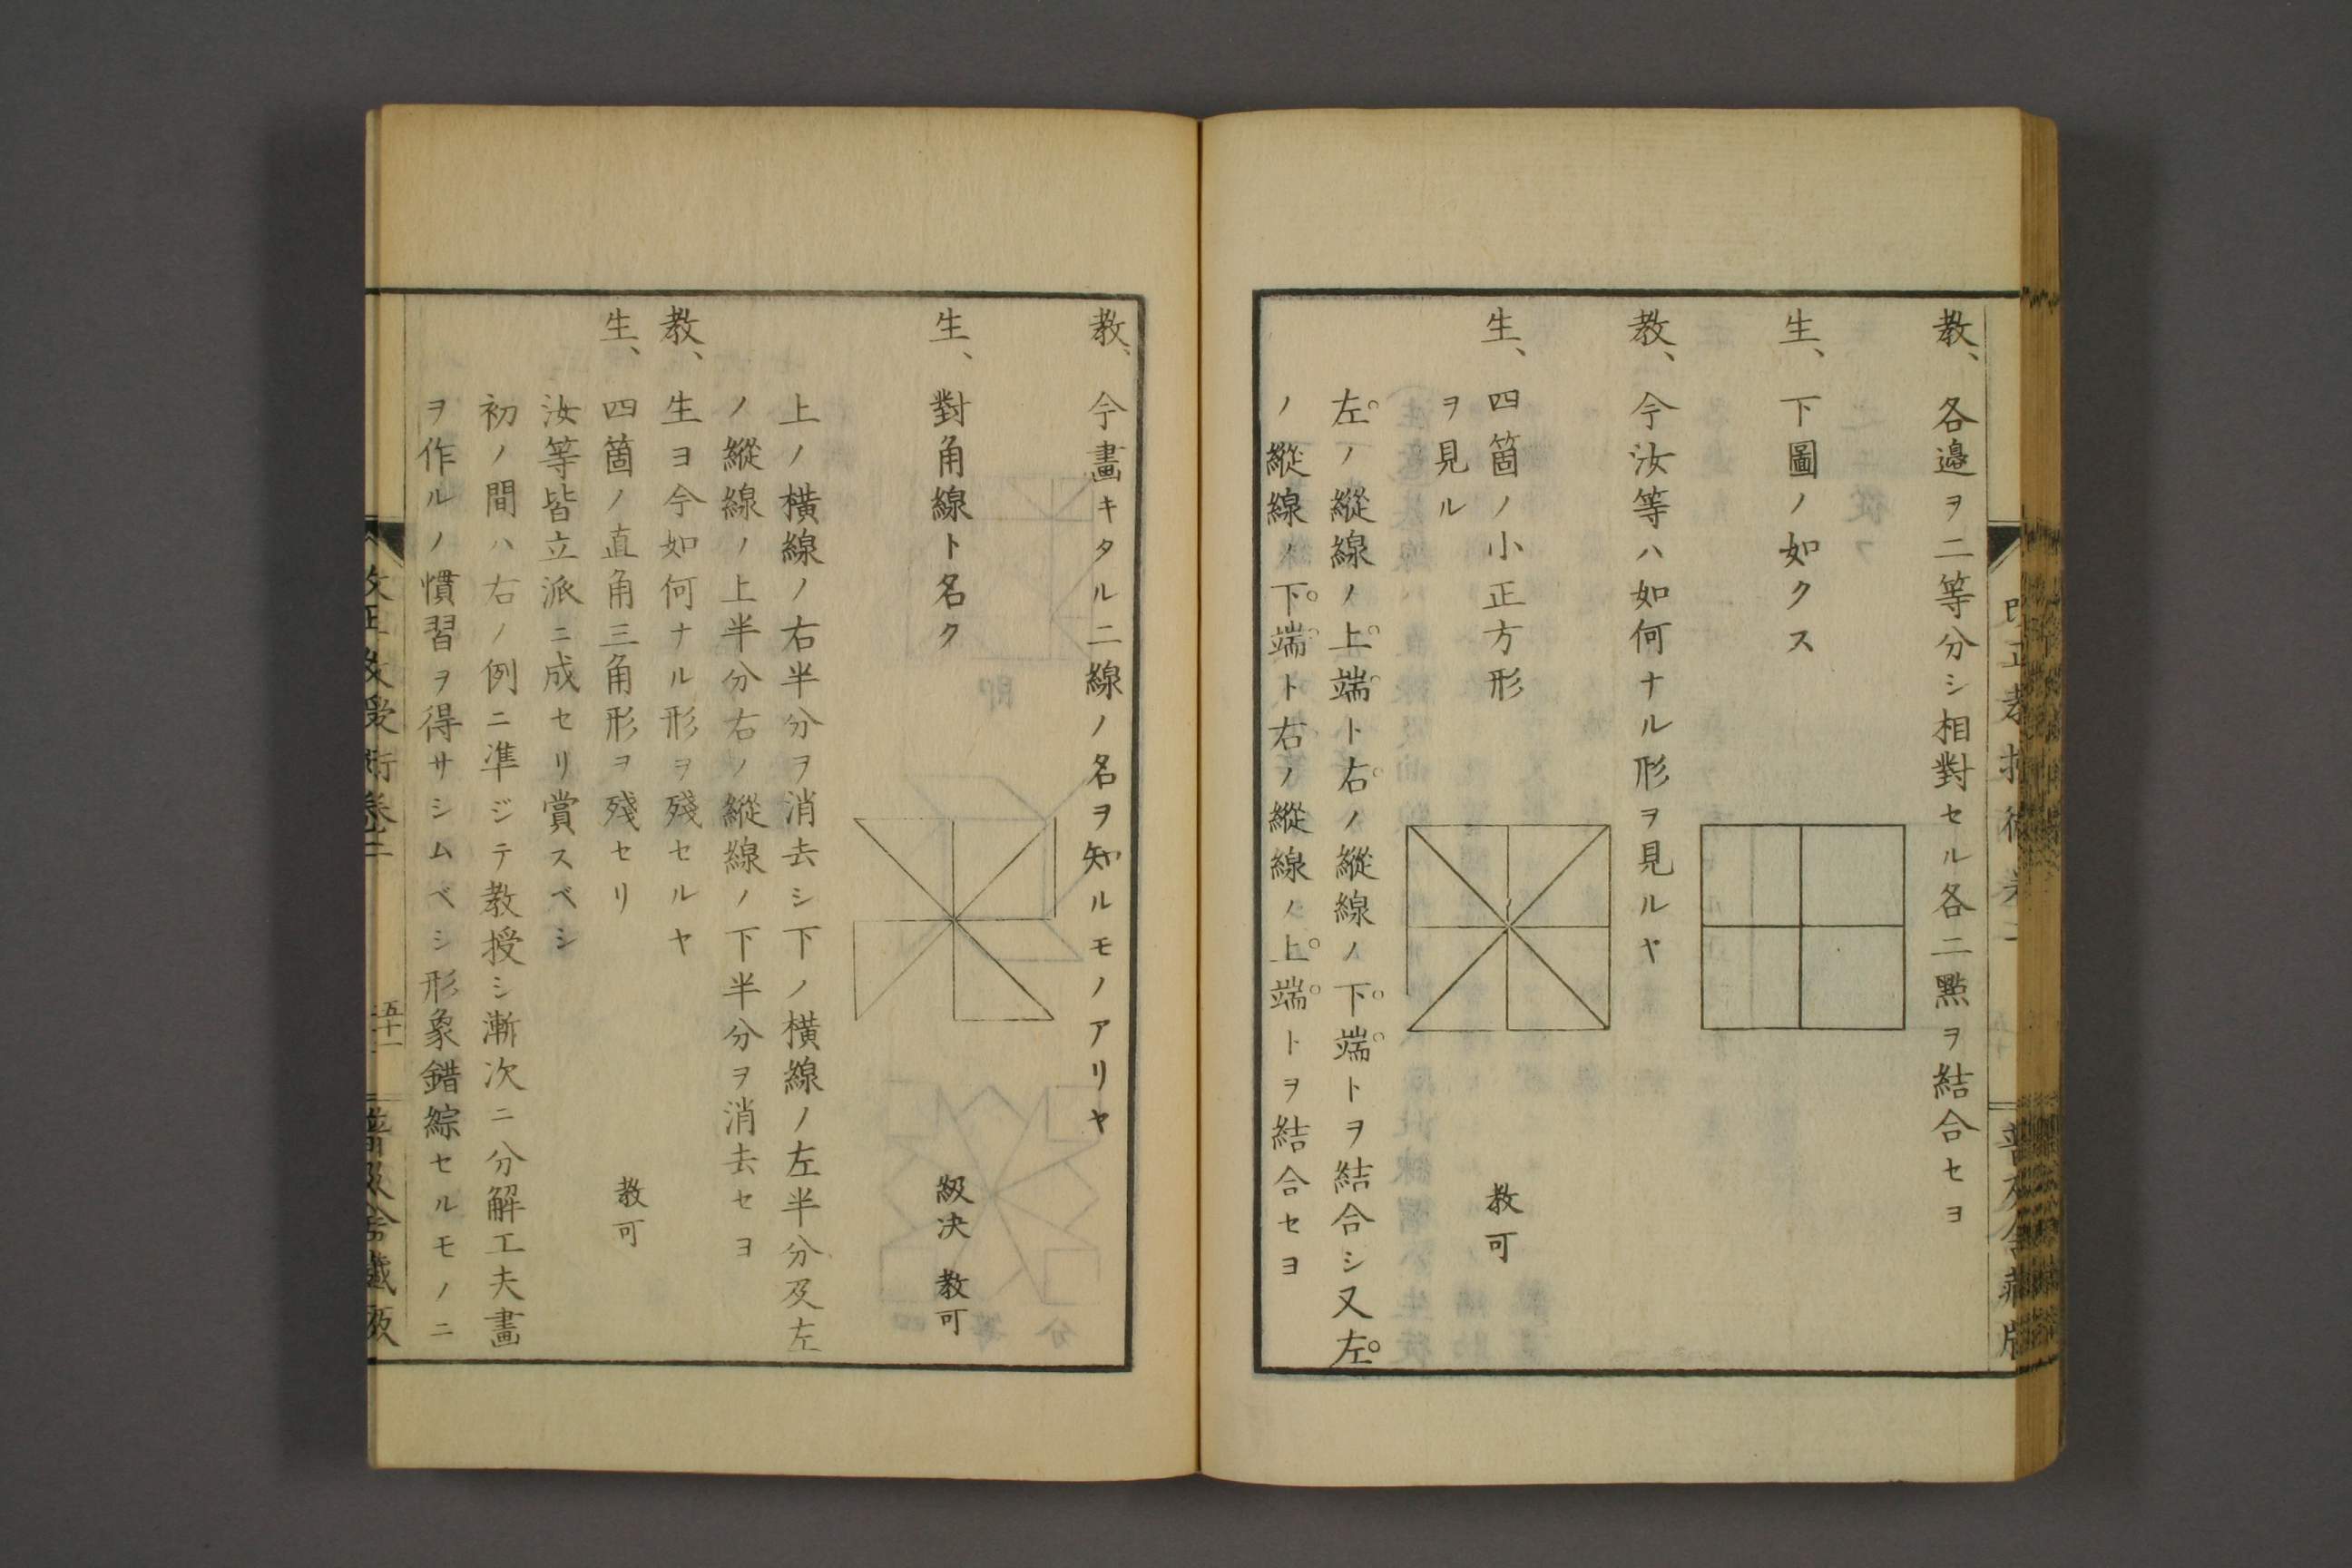 教、各邉ヲ二等分シ相對セル各二點ヲ結合セヨ
生、下圖ノ如クス
教、今汝等ハ如何ナル形ヲ見ルヤ
生、四箇ノ小正方形
ヲ見ル
教可
左ノ縱線ノ上端ト右ノ縱線ノ下端トヲ結合シ又左
ノ縱線ノ下端ト右ノ縱線ノ上端トヲ結合セヨ
教、今畫キタル二線ノ名ヲ知ルモノアリヤ
生、對角線ト名ク
級决 教可
上ノ橫線ノ右半分ヲ消去シ下ノ橫線ノ左半分及左
ノ縱線ノ上半分右ノ縱線ノ下半分ヲ消去セヨ
教、生ヨ今如何ナル形ヲ殘セルヤ
生、四箇ノ直角三角形ヲ殘セリ
教可
汝等皆立派ニ成セリ賞スベシ
初ノ間ハ右ノ例ニ凖ジテ教授シ漸次ニ分解工夫畫
ヲ作ルノ慣習ヲ得サシムベシ形象錯綜セルモノニ
改正教授術卷二
五十一
普及舍藏版